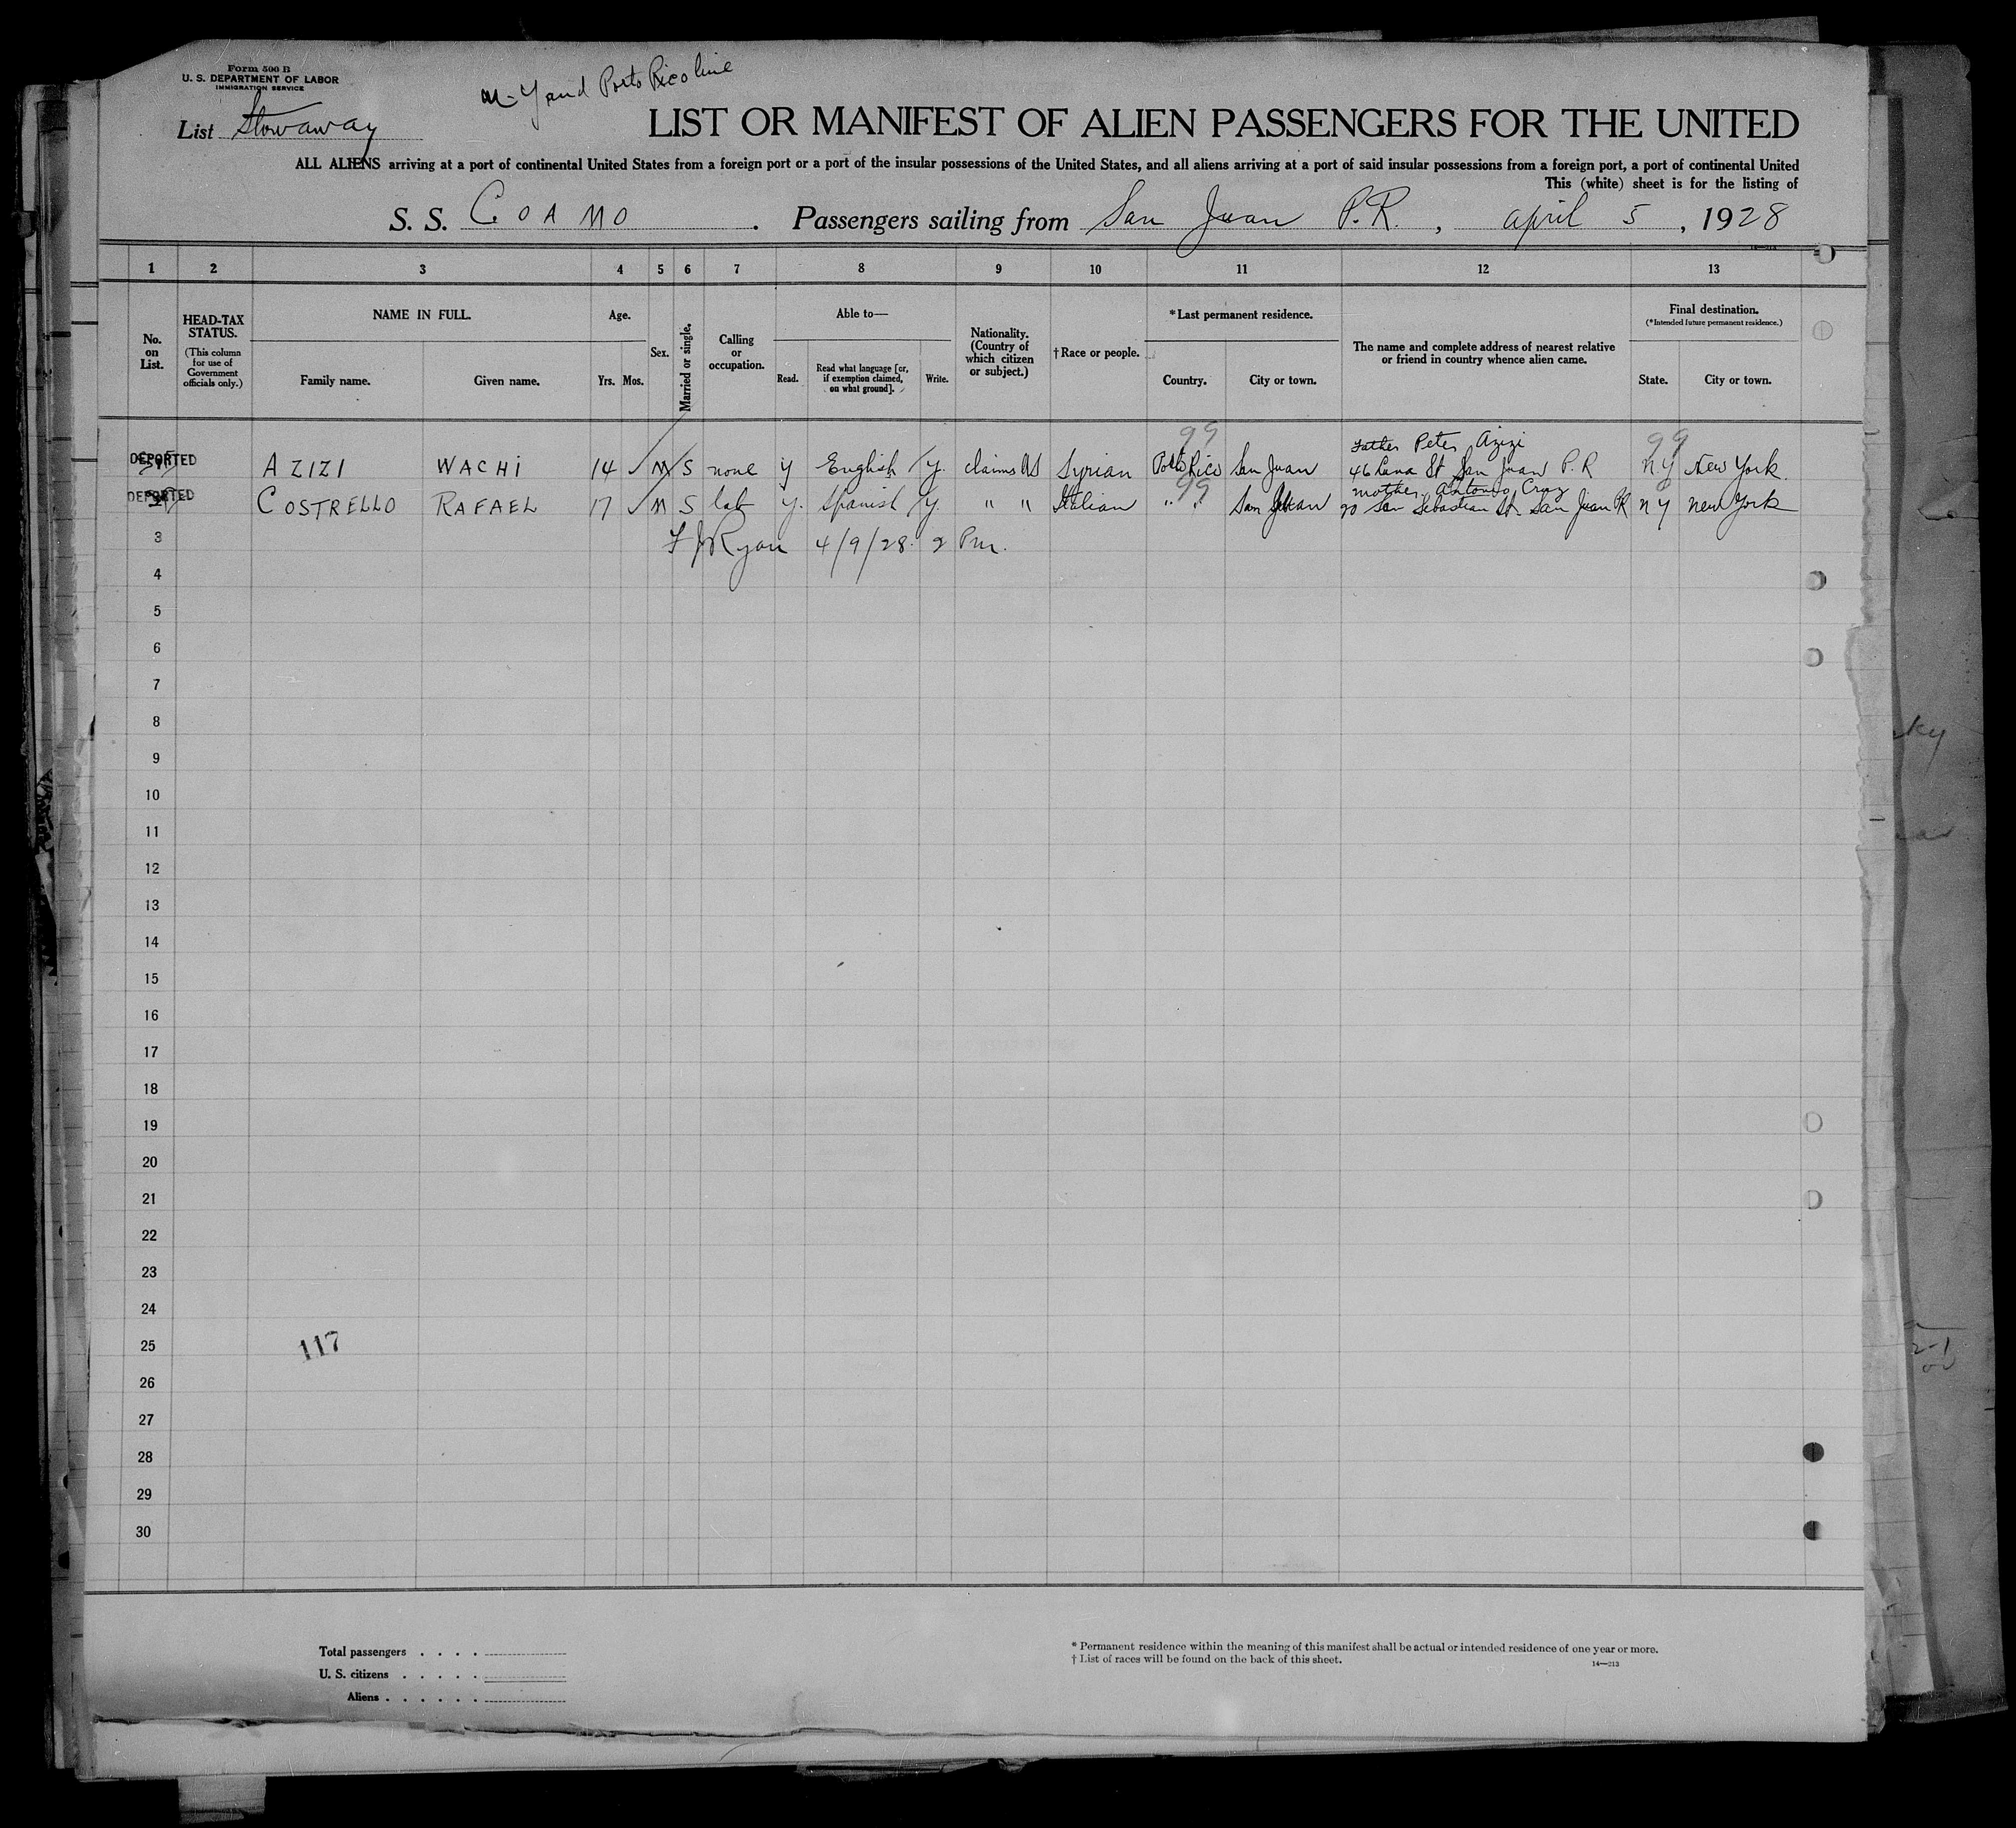 Form 500 B
U. S. DEPARTMENT OF LABOR
IMMIGRATION SERVICE
N-Y and Porto Rico line
List Stowaway
LIST OR MANIFEST OF ALIEN PASSENGERS FOR THE UNITED
ALL ALIENS arriving at a port of continental United States from a foreign port or a port of the insular possessions of the United States, and all aliens arriving at a port of said insular possessions from a foreign port, a port of continental United
This (white) sheet is for the listing of
S. S. COAMO. Passengers sailing from San Juan P.R., april 5, 1928
1 2 3 4 5 6 7 8 9 10 11 12 13
No. on List.
HEAD-TAX STATUS.
(This column for use of Government officials only.)
NAME IN FULL.
Family name. Given name.
Age.
Yrs. Mos.
Sex.
Married or single.
Calling or occupation.
Able to—
Read. Read what language [or, if exemption claimed, on what ground]. Write.
Nationality. (Country of which citizen or subject.)
†Race or people.
*Last permanent residence.
Country. City or town.
The name and complete address of nearest relative or friend in country whence alien came.
Final destination.
(*Intended future permanent residence.)
State. City or town.
99 Father Peter Azizi 99
DEPORTED AZIZI WACHI 14 M S none y English y. claims US Syrian Porto Rico San Juan 46 Luna St San Juan P.R N.Y New York.
99 mother Antonio Cruz
DEPORTED COSTRELLO RAFAEL 17 M S lab y. Spanish y. " " Italian " " San Juan 90 San Sebastian St. San Juan PR N Y New York
3 F J Ryan 4/9/28. 2 Pm.
4
5
6
7
8
9
10
11
12
13
14
15
16
17
18
19
20
21
22
23
24
25 117
26
27
28
29
30
Total passengers . . . .
U. S. citizens . . . . .
Aliens . . . . . .
* Permanent residence within the meaning of this manifest shall be actual or intended residence of one year or more.
† List of races will be found on the back of this sheet.
14—213